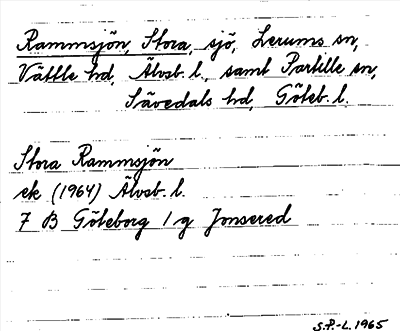 Rammsjön, Stora, sjö, Lerums sn,
Vättle hd, Älvsb. l., samt Partille sn,
Sävedals hd, Göteb. l.
Stora Rammsjön
ek (1964) Älvsb. l.
7 B Göteborg 1 g Jonsered
S.P.-L. 1965